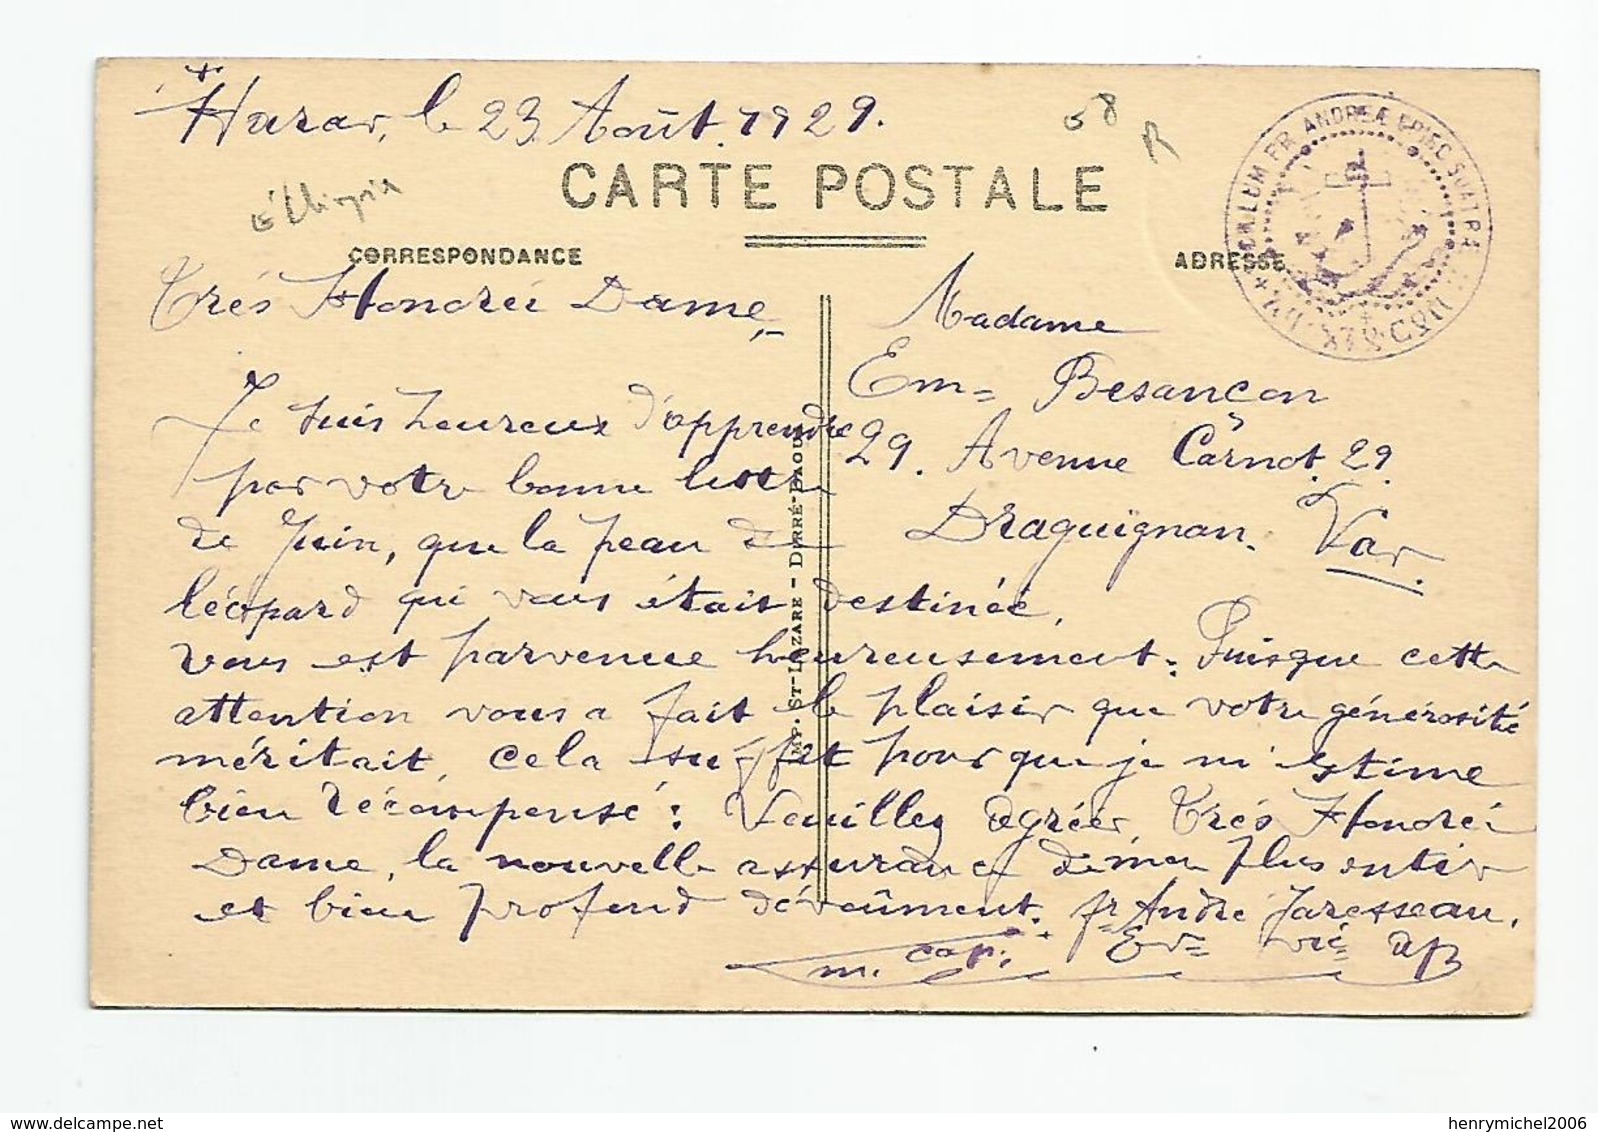 Harar, le 23 Août 1929.
58
R
Ethiopie
CARTE POSTALE
CORRESPONDANCE
ADRESSE
SIGILLUM FR. ANDREÆ EPISC. SOATRÆ
Très Honoréé Dame,
Je suis heureux d'apprendre
par votre bonne lettre
de Juin, que la peau de
léopard qui vous était destinéé,
vous est parvenue heureusement. Puisque cette
attention vous a fait le plaisir que votre générosité
méritait, cela suffit pour que je m'estime
bien récompensé: Veuillez agréer, Très Honoréé
Dame, la nouvelle assurance de mon plus entier
et bien profond dévoûment. fr André Jarosseau,
m. cap. Ev= vic= ap
Madame
Em= Besançon
29. Avenue Carnot. 29.
Draguignan. Var.
IMP. ST-LAZARE - DIRRÉ-DAOUA
henrymichel2006